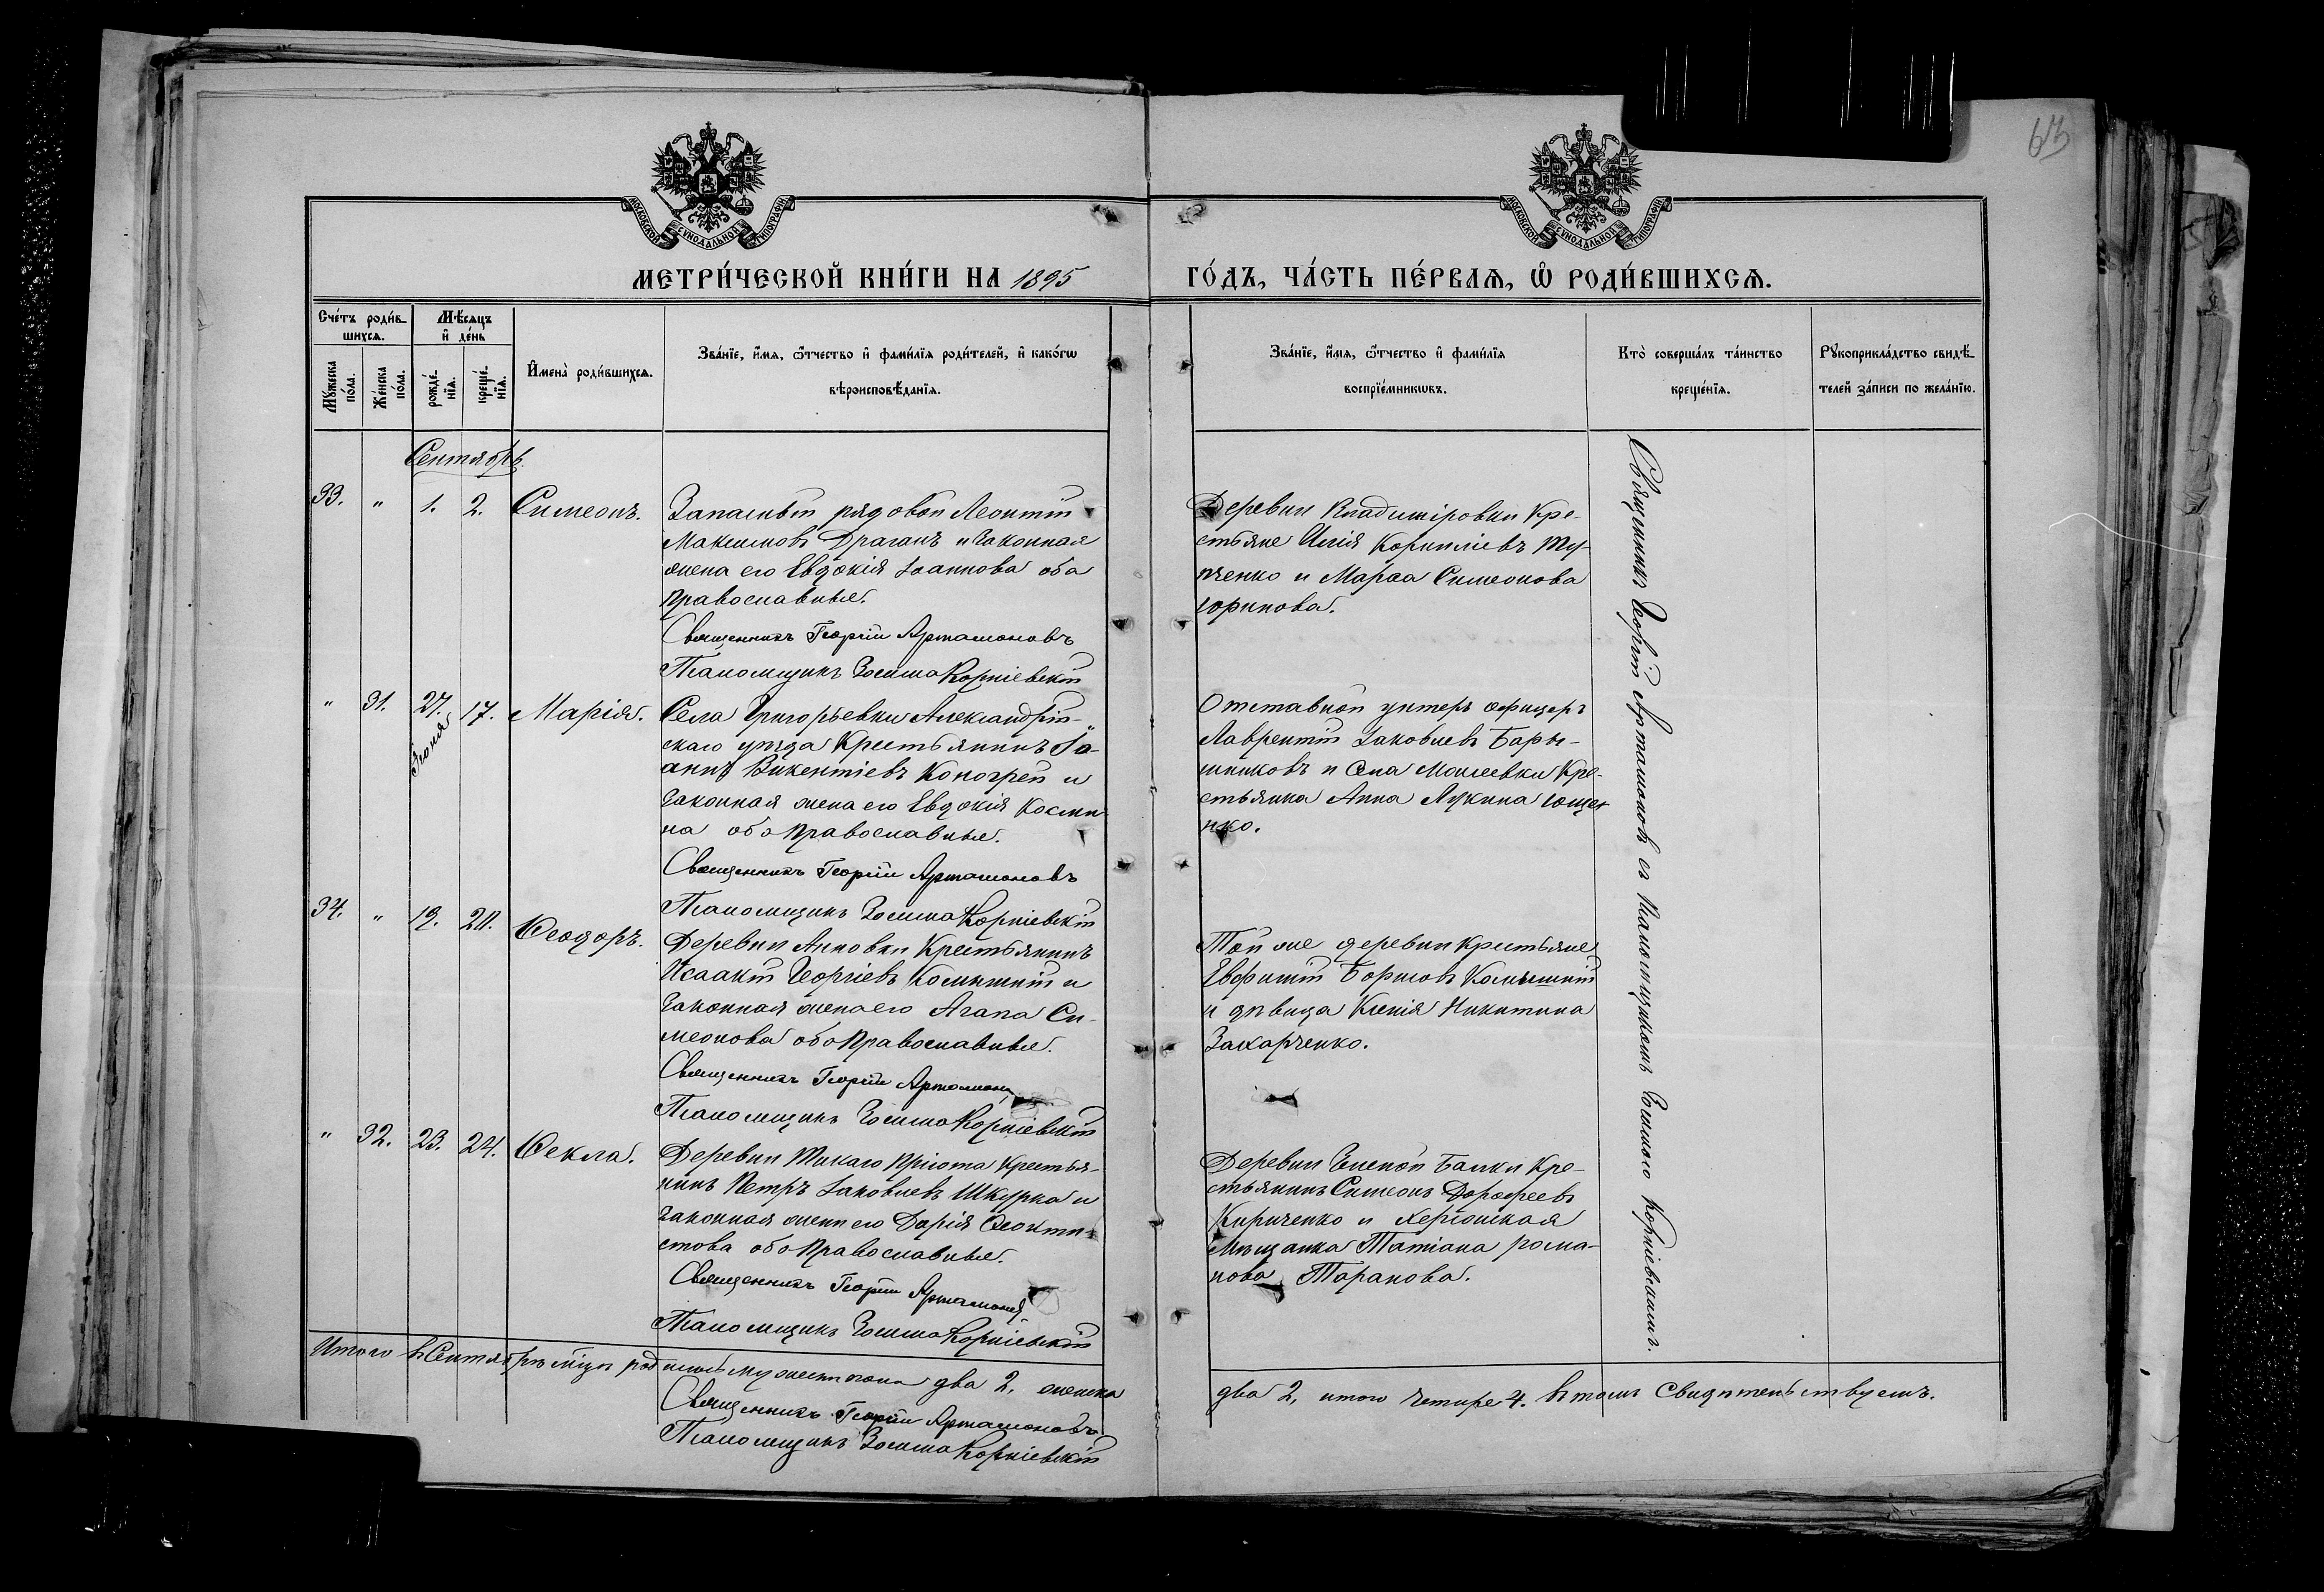 63
МОСКОВСКОЙ СѴНОДАЛЬНОЙ ТИПОГРАФІИ
МОСКОВСКОЙ СѴНОДАЛЬНОЙ ТИПОГРАФІИ
МЕТРИ́ЧЕСКОЙ КНИ́ГИ НА 1895 ГО́ДЪ, ЧА́СТЬ ПЕ́РВАѦ, Ѡ҆ РОДИ́ВШИХСѦ.
Сче́тъ роди́в-
шихсѧ.
Мꙋ́жеска
по́ла.
Же́нска
по́ла.
Мѣ́сѧцъ
и҆ де́нь
рожде́-
нїѧ.
креще́-
нїѧ.
И҆мена̀ роди́вшихсѧ.
Зва́нїе, и҆́мѧ, ѻ҆́тчество и҆ фами́лїѧ роди́телей, и҆ како́гѡ
вѣроисповѣ́данїѧ.
Зва́нїе, и҆́мѧ, ѻ҆́тчество и҆ фами́лїѧ
воспрїе́мникѡвъ.
Кто̀ соверша́лъ та́инство
креще́нїѧ.
Рꙋкоприкла́дство свидѣ́-
телей за́писи по жела́нїю.
Сентябрь.
33. " 1. 2. Симеонъ.
Запасный рядовой Леонтій
Максимовъ Драганъ и законная
жена его Евдокія Іоаннова оба
православные.
Священникъ Георгій Артамоновъ
Псаломщикъ Зосима Корніевскій
Деревни Владиміровки Кре-
стьяне Илія Корниліевъ
и Марѳа Симеонова
" 31. 27. Іюня 17. Марія.
Села Григорьевки Александрій-
скаго уѣзда Крестьянинъ Іо-
аннъ Викентіевъ Коногрей и
законная жена его Евдокія Косми-
на оба православные.
Священникъ Георгій Артамоновъ
Псаломщикъ Зосима Корніевскій
Отставной унтеръ офицеръ
Лаврентій Іаковлевъ Бары-
шниковъ и Села Моисеевки Кре-
стьянка Анна Лукина Ющен-
нко.
34. " 19. 20. Ѳеодоръ.
Деревни Анновки Крестьянинъ
Исаакій Георгіевъ и
законная жена его Агапа Си-
меонова оба православные.
Священникъ Георгій Артамоновъ
Псаломщикъ Зосима Корніевскій
Той же деревни крестьяне
Евфимій Борисовъ
и дѣвица Ксенія Никитина
Захарченко.
" 32. 23. 24. Ѳекла.
Деревни Тихаго Пріюта Крестья-
нинъ Петръ Іаковлевъ Шкурка и
законная жена его Дарія Ѳеокти-
стова оба православные.
Священникъ Георгій Артамоновъ
Псаломщикъ Зосима Корніевскій
Деревни Зеленой Балки Кре-
стьянинъ Симеонъ Дороѳеевъ
Кириченко и Херсонская
мѣщанка Татіана Рома-
нова Таранова.
Священникъ Георгій Артамоновъ съ псаломщикомъ Зосимою Корніевскимъ.
Итого въ Сентябрѣ мѣсцѣ родилось мужеска пола два 2, женска
два 2, итого четыре 4. Въ томъ свидѣтельствуемъ.
Священникъ Георгій Артамоновъ
Псаломщикъ Зосима Корніевскій